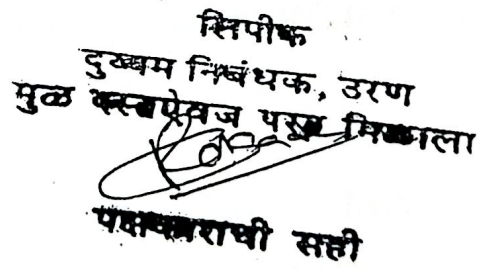 लिपीक
दुय्यम निबंधक, उरण
मुळ दस्तऐवज परत मिळाला
पक्षकाराची सही